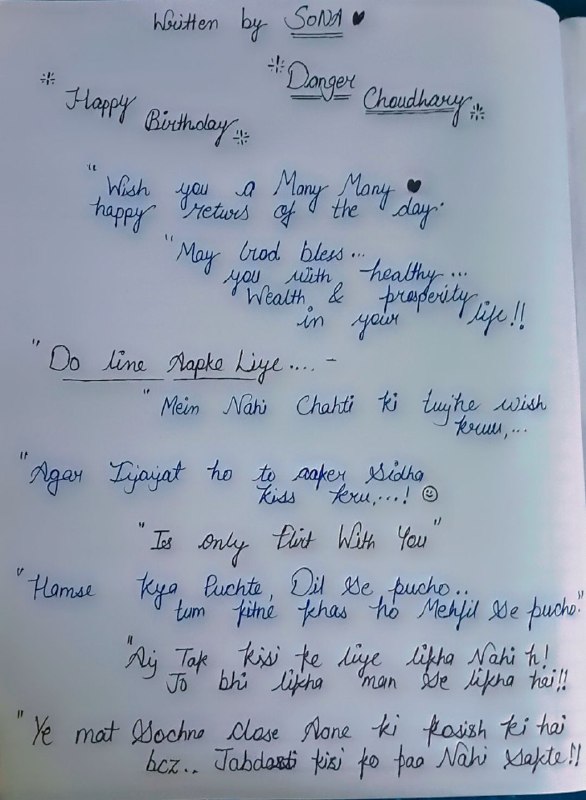 Written by SONA ♥
Happy Birthday
Danger Choudhary
"Wish you a Many Many ♥
happy returs of the day.
"May God bless...
you with healthy...
Wealth & prosperity
in your life!!
"Do line Aapke Liye.... -
"Mein Nahi Chahti ki tujhe wish
kruu,...
"Agar Ijajat ho to aaker Sidha
kiss kru,...! ☺
"Its only Flirt With You"
"Hamse kya Puchte, Dil se pucho..
tum kitne khas ho Mehfil se pucho."
"Aij Tak kisi ke liye likha Nahi h!
Jo bhi likha man se likha hai!!
"Ye mat Sochna close Aane ki kosish ki hai
bcz.. Jabdasti kisi ko paa Nahi sakte!!